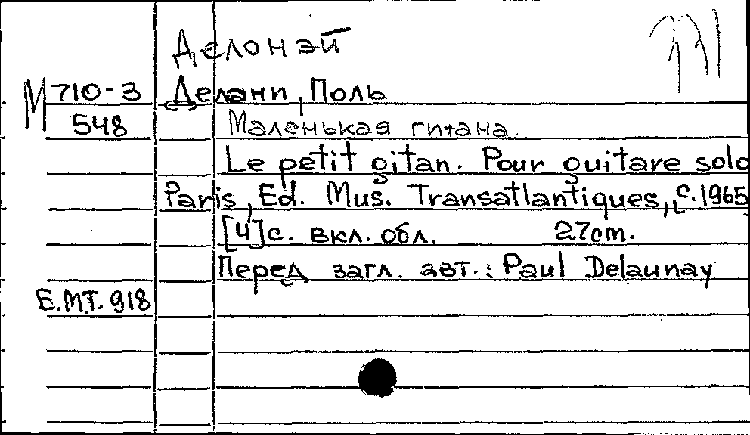 Делонэй
М 710-3 Делани, Поль
548 Маленькая гитана.
Le petit gitan. Pour guitare solo
Paris, Ed. Mus. Transatlantiques, c.1965
[4]с. вкл. обл. 27cm.
Перед загл. авт.: Paul Delaunay
E.M.T. 918